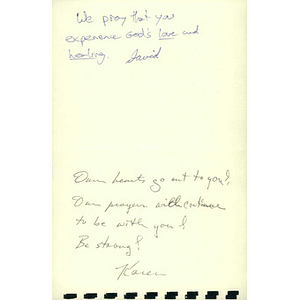 We pray that you
experience God's love and
healing. David
Our hearts go out to you!
Our prayers will continue
to be with you!
Be strong!
Karen